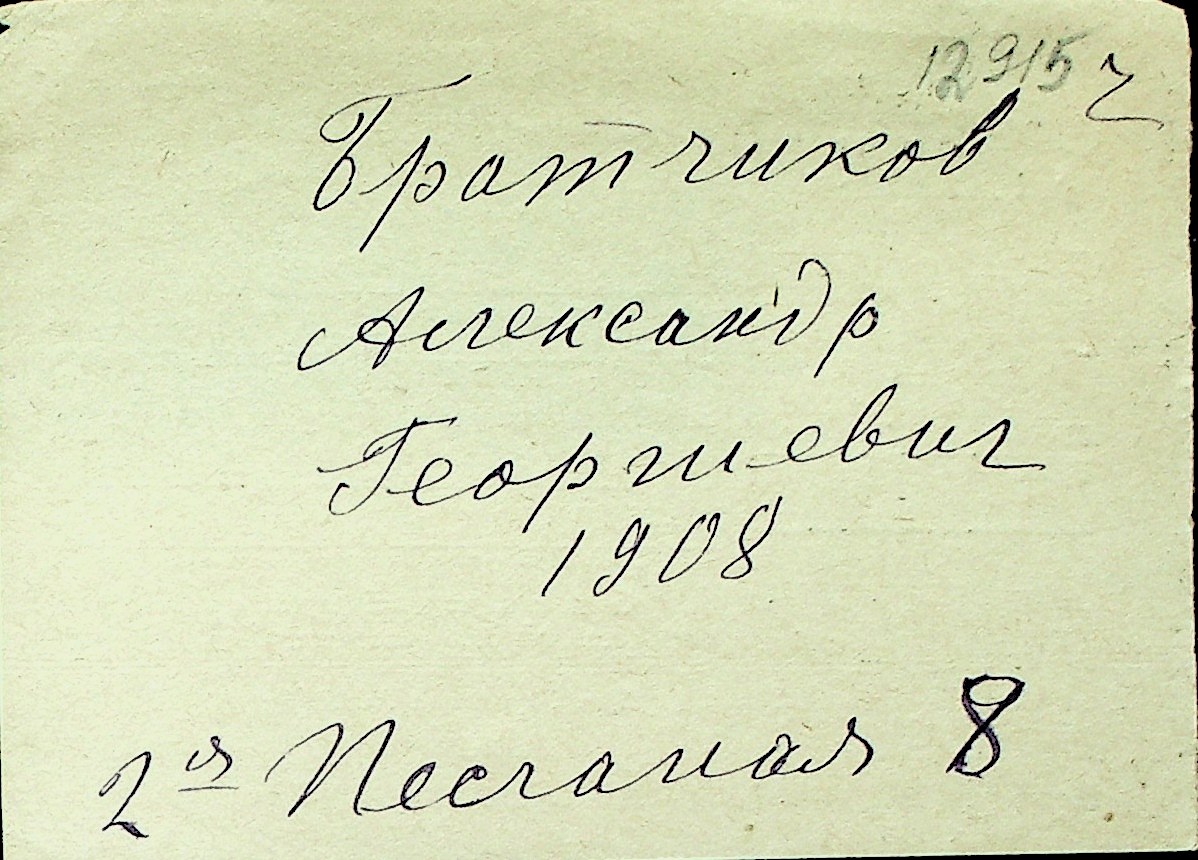 12915
Братчиков
Александр
Георгиевич
1908
2я Песчаная 8